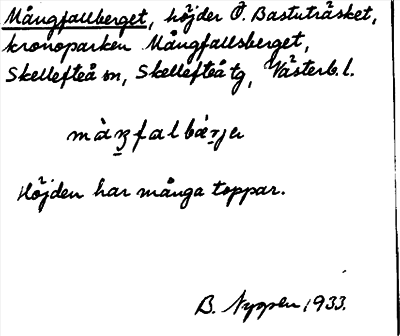 Mångfallberget, höjder Ö. Bastuträsket,
kronoparken Mångfallsberget,
Skellefteå sn, Skellefteå tg, Västerb. l.
Höjden har många toppar.
B. Nyppen 1933.